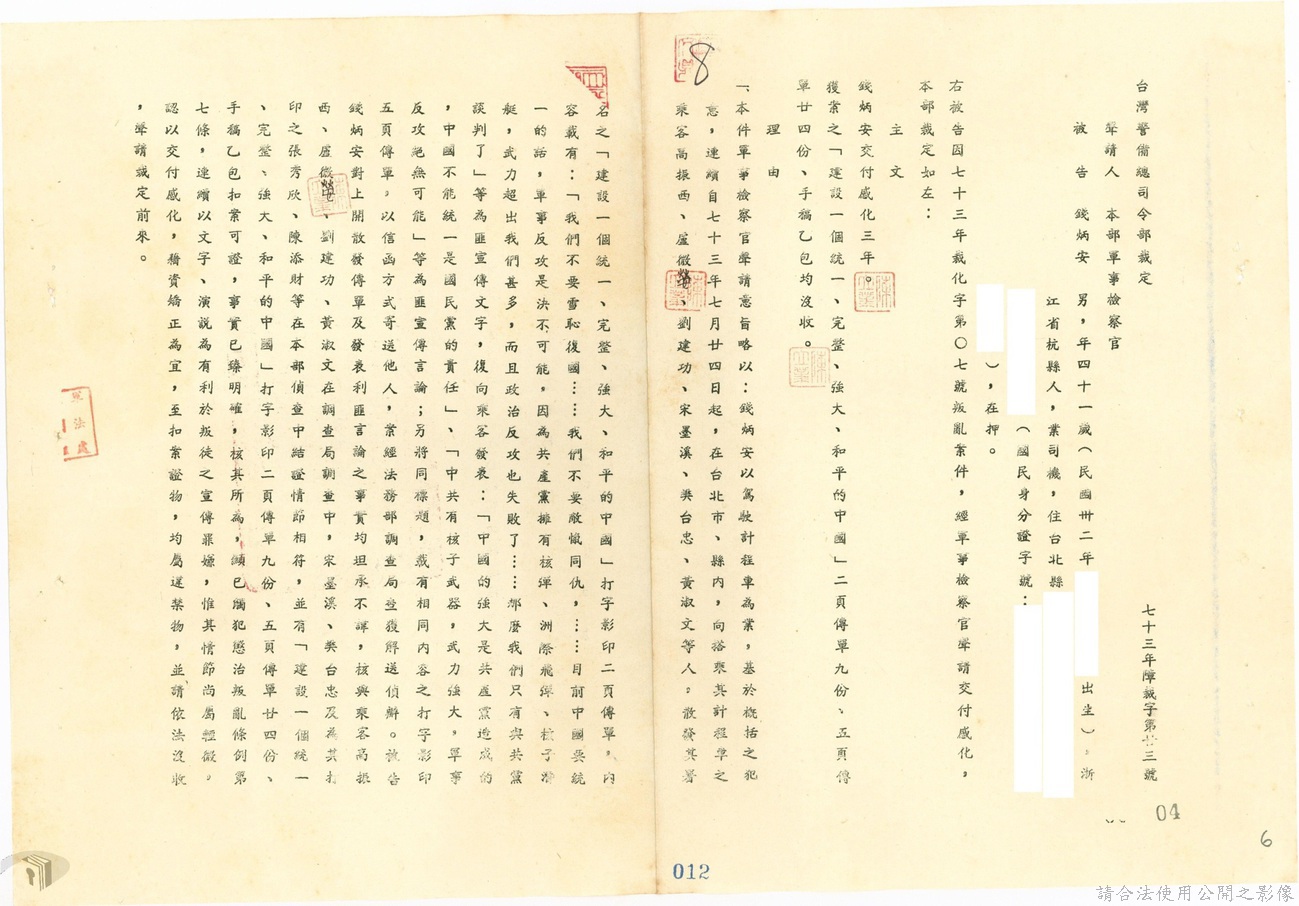 台灣警備總司令部裁定
七十三年障裁字第廿三號
聲請人 本部軍事檢察官
被告 錢炳安 男,年四十一歲(民國卅二年 出生),浙
江省杭縣人,業司機,住台北縣
(國民身分證字號:
),在押。
右被告因七十三年裁化字第〇七號叛亂案件,經軍事檢察官聲請交付感化,
本部裁定如左:
主文
錢炳安交付感化三年。
獲案之「建設一個統一、完整、強大、和平的中國」二頁傳單九份、五頁傳
單廿四份、手稿乙包均沒收。
理由
一、本件軍事檢察官聲請意旨略以:錢炳安以駕駛計程車為業,基於概括之犯
意,連續自七十三年七月廿四日起,在台北市、縣內,向搭乘其計程車之
乘客高振西、盧微鶯、劉建功、宋墨溪、樊台忠、黃淑文等人。散發其署
名之「建設一個統一、完整、強大、和平的中國」打字影印二頁傳單,內
容載有:「我們不要雪恥復國……我們不要敵愾同仇,……目前中國要統
一的話,軍事反攻是決不可能,因為共產黨擁有核彈、洲際飛彈、核子潛
艇,武力超出我們甚多,而且政治反攻也失敗了……那麼我們只有與共黨
談判了」等為匪宣傳文字,復向乘客發表:「中國的強大是共產黨造成的
,中國不能統一是國民黨的責任」、「中共有核子武器,武力強大,軍事
反攻絕無可能」等為匪宣傳言論;另將同標題,載有相同內容之打字影印
五頁傳單,以信函方式寄送他人,案經法務部調查局查獲解送偵辦。被告
錢炳安對上開散發傳單及發表利匪言論之事實均坦承不諱,核與乘客高振
西、盧微鶯、劉建功、黃淑文在調查局調查中,宋墨溪、樊台忠及為其打
印之張秀欣、陳添財等在本部偵查中結證情節相符,並有「建設一個統一
、完整、強大、和平的中國」打字影印二頁傳單九份、五頁傳單廿四份、
手稿乙包扣案可證,事實已臻明確,核其所為,顯已觸犯懲治叛亂條例第
七條,連續以文字、演說為有利於叛徒之宣傳罪嫌,惟其情節尚屬輕微。
認以交付感化,藉資矯正為宜,至扣案證物,均屬違禁物,並請依法沒收
,聲請裁定前來。
8
04
6
012
請合法使用公開之影像